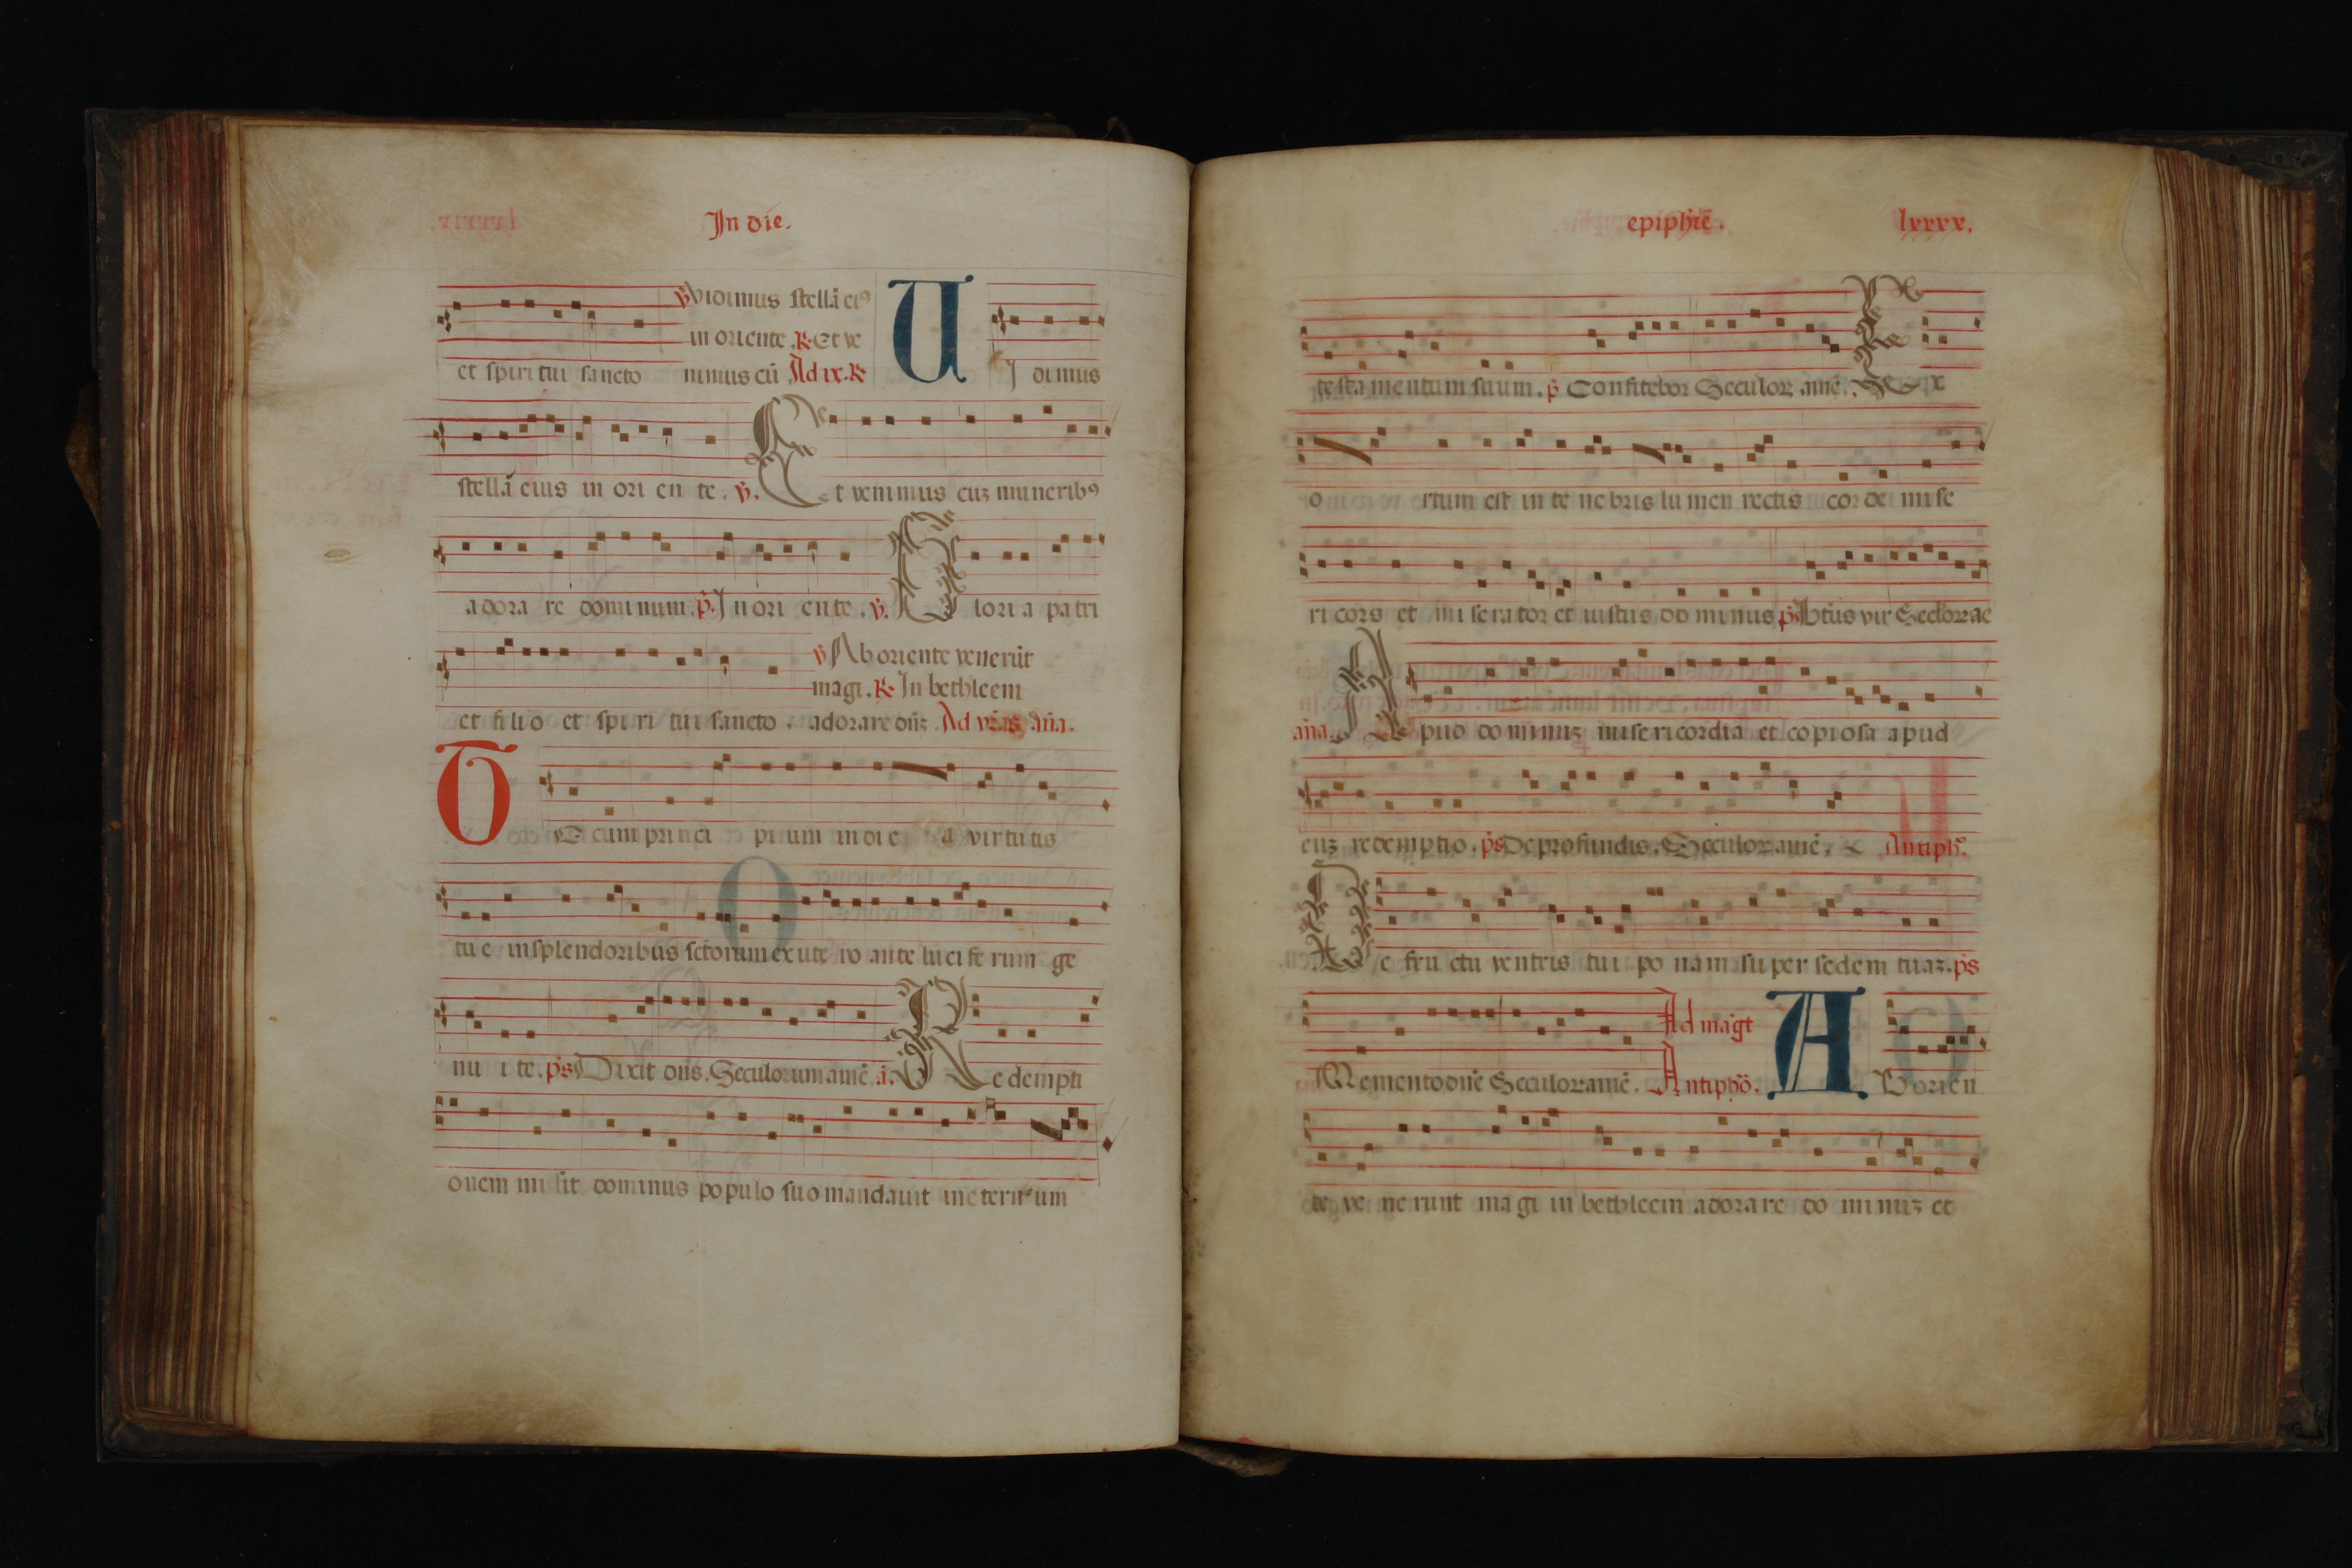 In die.
et spiritui sancto
℣ vidimus stellā ei⁹
in oriente. ℟. Et ve
nimus cū Ad ix. ℟
U I dimus
stellā eius in ori en te. ℣. Et venimus cuꝫ munerib⁹
adora re dominum. p̄. In ori ente. ℣. Glori a patri
et filio et spiri tui sancto.
℣ Ab oriente venerūt
magi. ℟ In bethleem
adorare dn̄ꝫ Ad vr̄as an̄a.
T E cum princi pium in die a virtutis
tu e insplendoribus sctorum ex ute ro ante luci fe rum ge
nu i te. ps̄ Dixit dn̄s. Seculorum amē. ā. Redempti
onem mi sit dominus populo suo mandauit in eternum
epiphīe.
lxxxx.
testamentum suum. p̄ Confitebor Seculoꝝ amē. Ex
o rtum est in te nebris lumen rectis cor de mi se
ri cors et mi se ra tor et iustus do minus p̄s Btūs vir Seclorꝝ ae
an̄a. Apud dominuꝫ misericordia et copiosa apud
euꝫ redemptio. ps̄ De profundis. Seculoꝝ amē. Antiph̄o.
De fru ctu ventris tui po nam super sedem tuaꝫ. ps̄
Memento dn̄e Seculoꝝ amē.
Ad maḡt
Antiph̄o.
A B orien
te ve ne runt ma gi in bethleem adora re do minuꝫ et